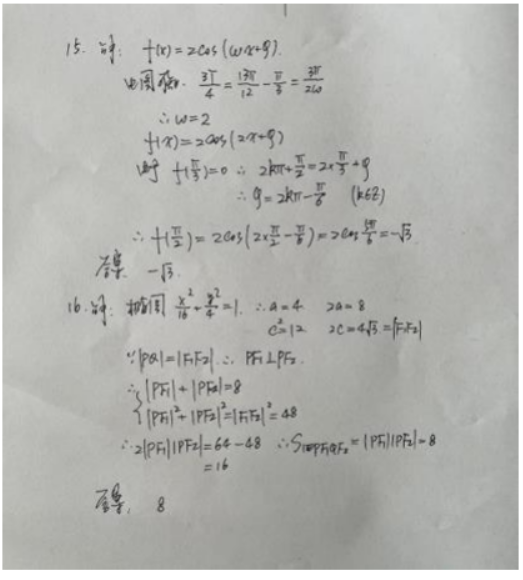 15. 解: f(x)=2cos(ωx+φ).
由图知. 3T/4=13π/12-π/3=3π/2ω
∴ω=2
f(x)=2cos(2x+φ)
由于 f(π/3)=0 ∴ 2kπ+π/2=2×π/3+φ
∴φ=2kπ-π/6 (k∈Z)
∴f(π/2)=2cos(2×π/2-π/6)=2cos5π/6=-√3
答案. -√3.
16. 解: 椭圆 x²/16+y²/4=1. ∴a=4 2a=8
c²=12 2c=4√3=|F₁F₂|
∵|PQ|=|F₁F₂|. ∴ PF₁⊥PF₂.
∴{|PF₁|+|PF₂|=8
|PF₁|²+|PF₂|²=|F₁F₂|²=48
∴2|PF₁||PF₂|=64-48 ∴S四边形PF₁QF₂=|PF₁||PF₂|=8
=16
答案. 8